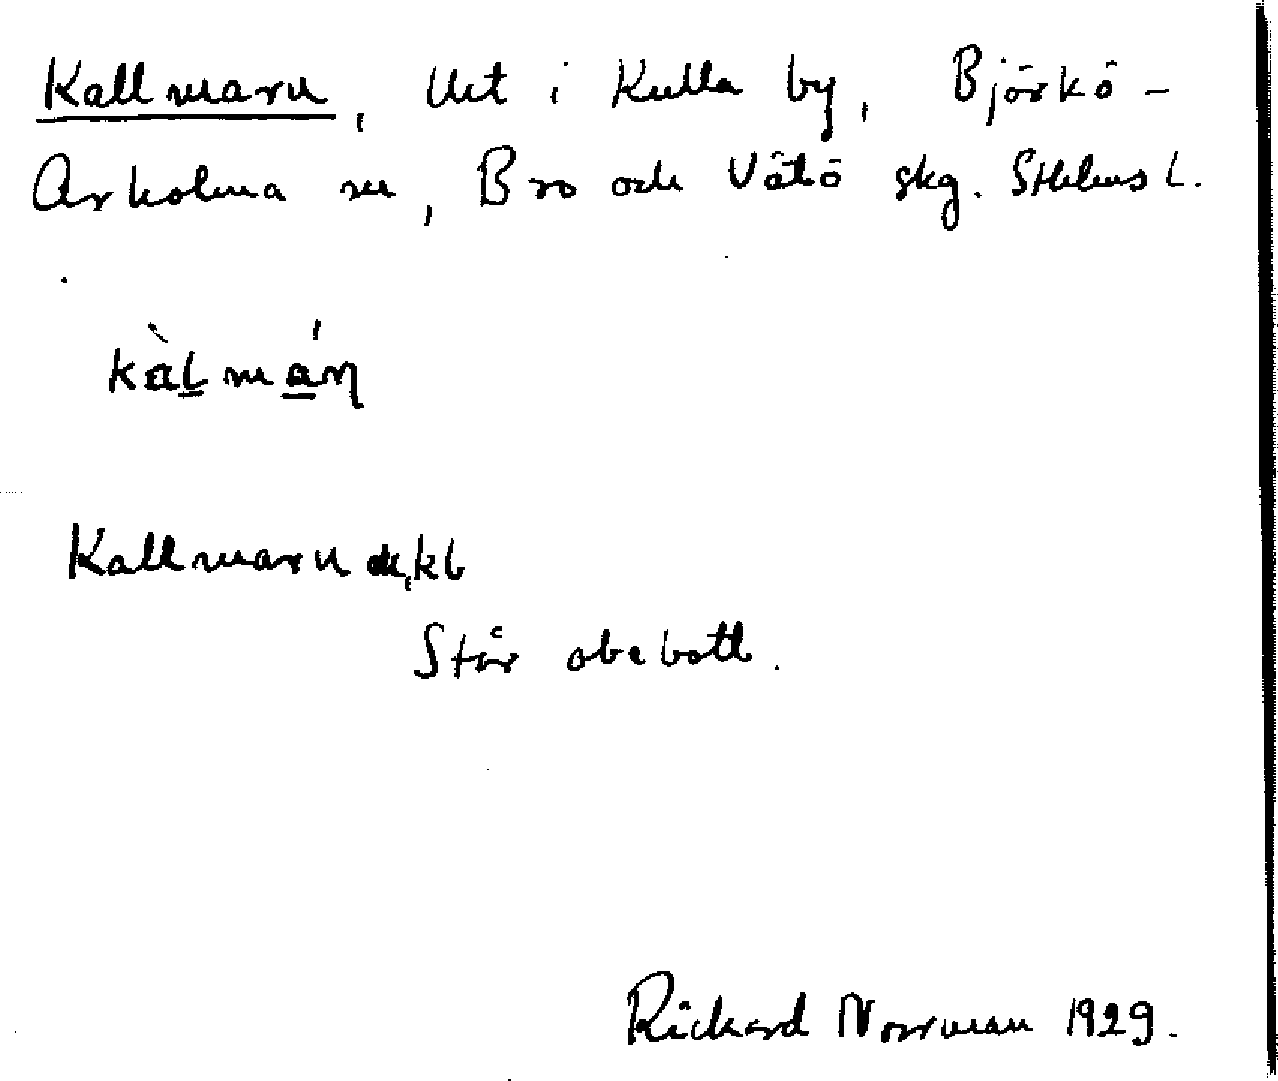 Kallmarn, Uet i Kulla by, Björkö-
Arholma sn, Bro och Vätö skg. Sthlms L.
kàḷmáṇ
Kallmarn ekbl
Står obebott.
Rickard Norrman 1929.